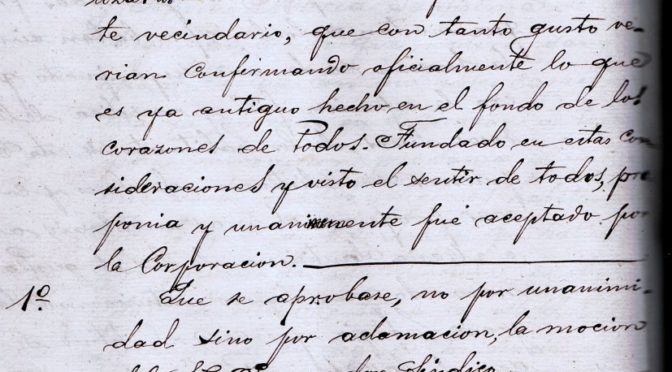 te vecindario, que con tanto gusto ve-
rian confirmando oficialmente lo que
es ya antiguo hecho en el fondo de los
corazones de Todos. Fundado en estas con
sideraciones y visto el sentir de todos, pro
ponia y unanimente fué aceptado por
la Corporacion.
1º. Que se aprobase, no por unanimi-
dad sino por aclamacion, la mocion
Sindico